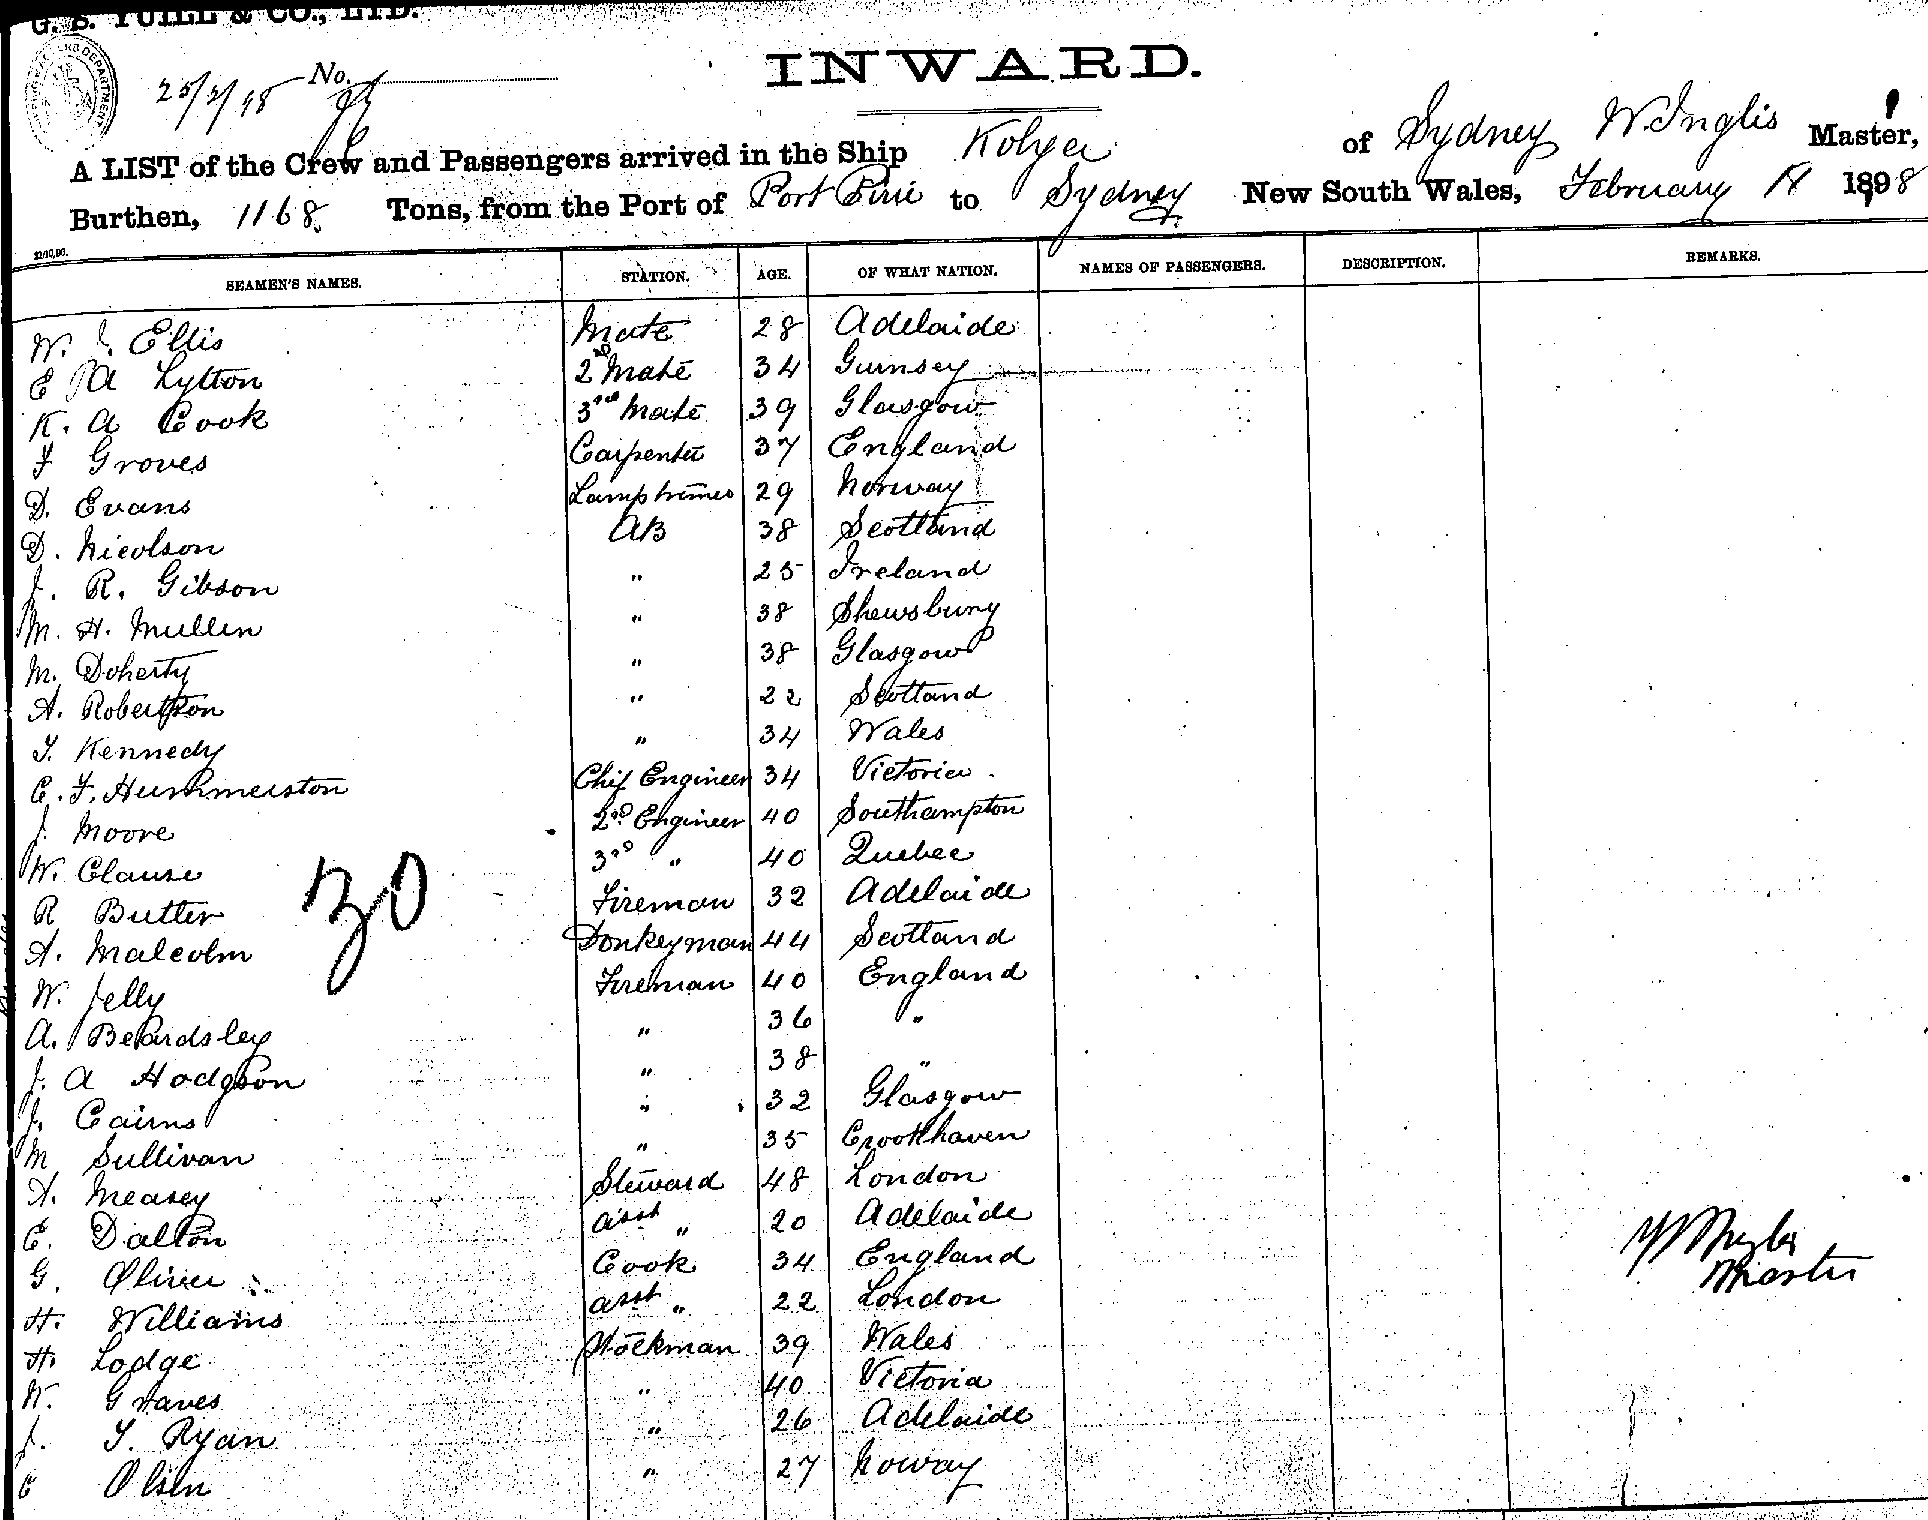 G. S. YUILL & CO., LTD.
INWARD.
25/2/98 No.
A LIST of the Crew and Passengers arrived in the Ship Kolya of Sydney W. Inglis Master,
Burthen, 1168 Tons, from the Port of Port Pirie to Sydney New South Wales, February 1898
SEAMEN'S NAMES. STATION. AGE. OF WHAT NATION. NAMES OF PASSENGERS. DESCRIPTION. REMARKS.
W. J. Ellis Mate 28 Adelaide
E A Lytton 2nd Mate 34 Gurnsey
K. A Cook 3rd Mate 39 Glasgow
F Groves Carpenter 37 England
D. Evans Lamptrimer 29 Norway
D. Nicolson AB 38 Scotland
J. R. Gibson " 25 Ireland
M. H. Mullin " 38 Shewsbury
M. Doherty " 38 Glasgow
A. Robertson " 22 Scotland
T. Kennedy " 34 Wales
C. F. Hummerston Chif Engineer 34 Victoria
J. Moore 2nd Engineer 40 Southampton
W. Clause 3rd " 40 Quebec
R Butler Fireman 32 Adelaide
A. Malcolm Donkeyman 44 Scotland
W. Jelly Fireman 40 England
A. Beardsley " 36 "
J. A Hodgson " 38 "
J. Cairns " 32 Glasgow
M Sullivan " 35 Crookhaven
A. Measey Steward 48 London
E. Dalton asst " 20 Adelaide
G. Oliver Cook 34 England
H. Williams asst " 22 London
H. Lodge Stockman 39 Wales
W. Graves " 40 Victoria
J. T. Ryan " 26 Adelaide
O Olsen " 27 Noway
30
W Inglis
Master